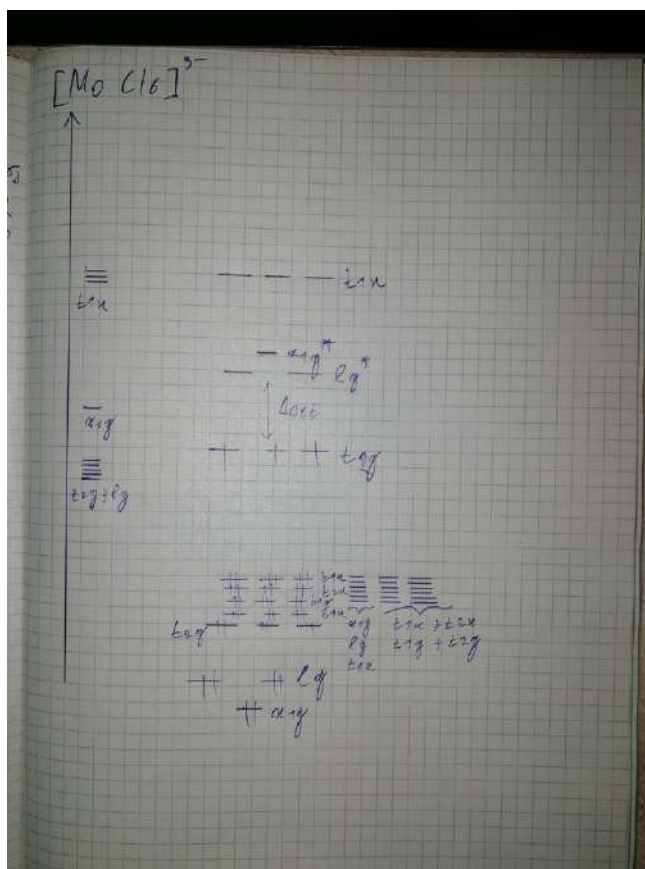 [Mo Cl6]³⁻
t1u
t1u
a1g*
eg*
Δoct
a1g
t2g
t2g+eg
t1u
t2u
t1g
t1u
t2g
a1g
eg
t1u
t1u + t2u
t1g + t2g
eg
a1g